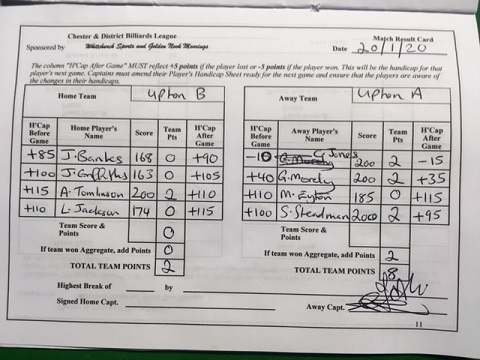 Chester & District Billiards League
Match Result Card
Sponsored by Whitchurch Sports and Golden Nook Moorings
Date 20/1/20
The column "H'Cap After Game" MUST reflect +5 points if the player lost or -5 points if the player won. This will be the handicap for that
player's next game. Captains must amend their Player's Handicap Sheet ready for the next game and ensure that the players are aware of
the changes in their handicaps.
Home Team Upton B
H'Cap Before Game Home Player's Name Score Team Pts H'Cap After Game
+85 J. Banks 168 0 +90
+100 J. Griffiths 163 0 +105
+115 A. Tomlinson 200 2 +110
+110 L. Jackson 174 0 +115
Team Score & Points 0
If team won Aggregate, add Points 0
TOTAL TEAM POINTS 2
Highest Break of by
Signed Home Capt.
Away Team Upton A
H'Cap Before Game Away Player's Name Score Team Pts H'Cap After Game
-10 G. Mordy C Jones 200 2 -15
+40 G. Mordy 200 2 +35
+110 M. Eyton 185 0 +115
+100 S. Steadman 200 2 +95
Team Score & Points
If team won Aggregate, add Points 2
TOTAL TEAM POINTS 8
Away Capt.
11